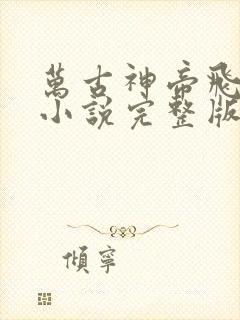 萬古神帝飛
小說完整版
傾寧